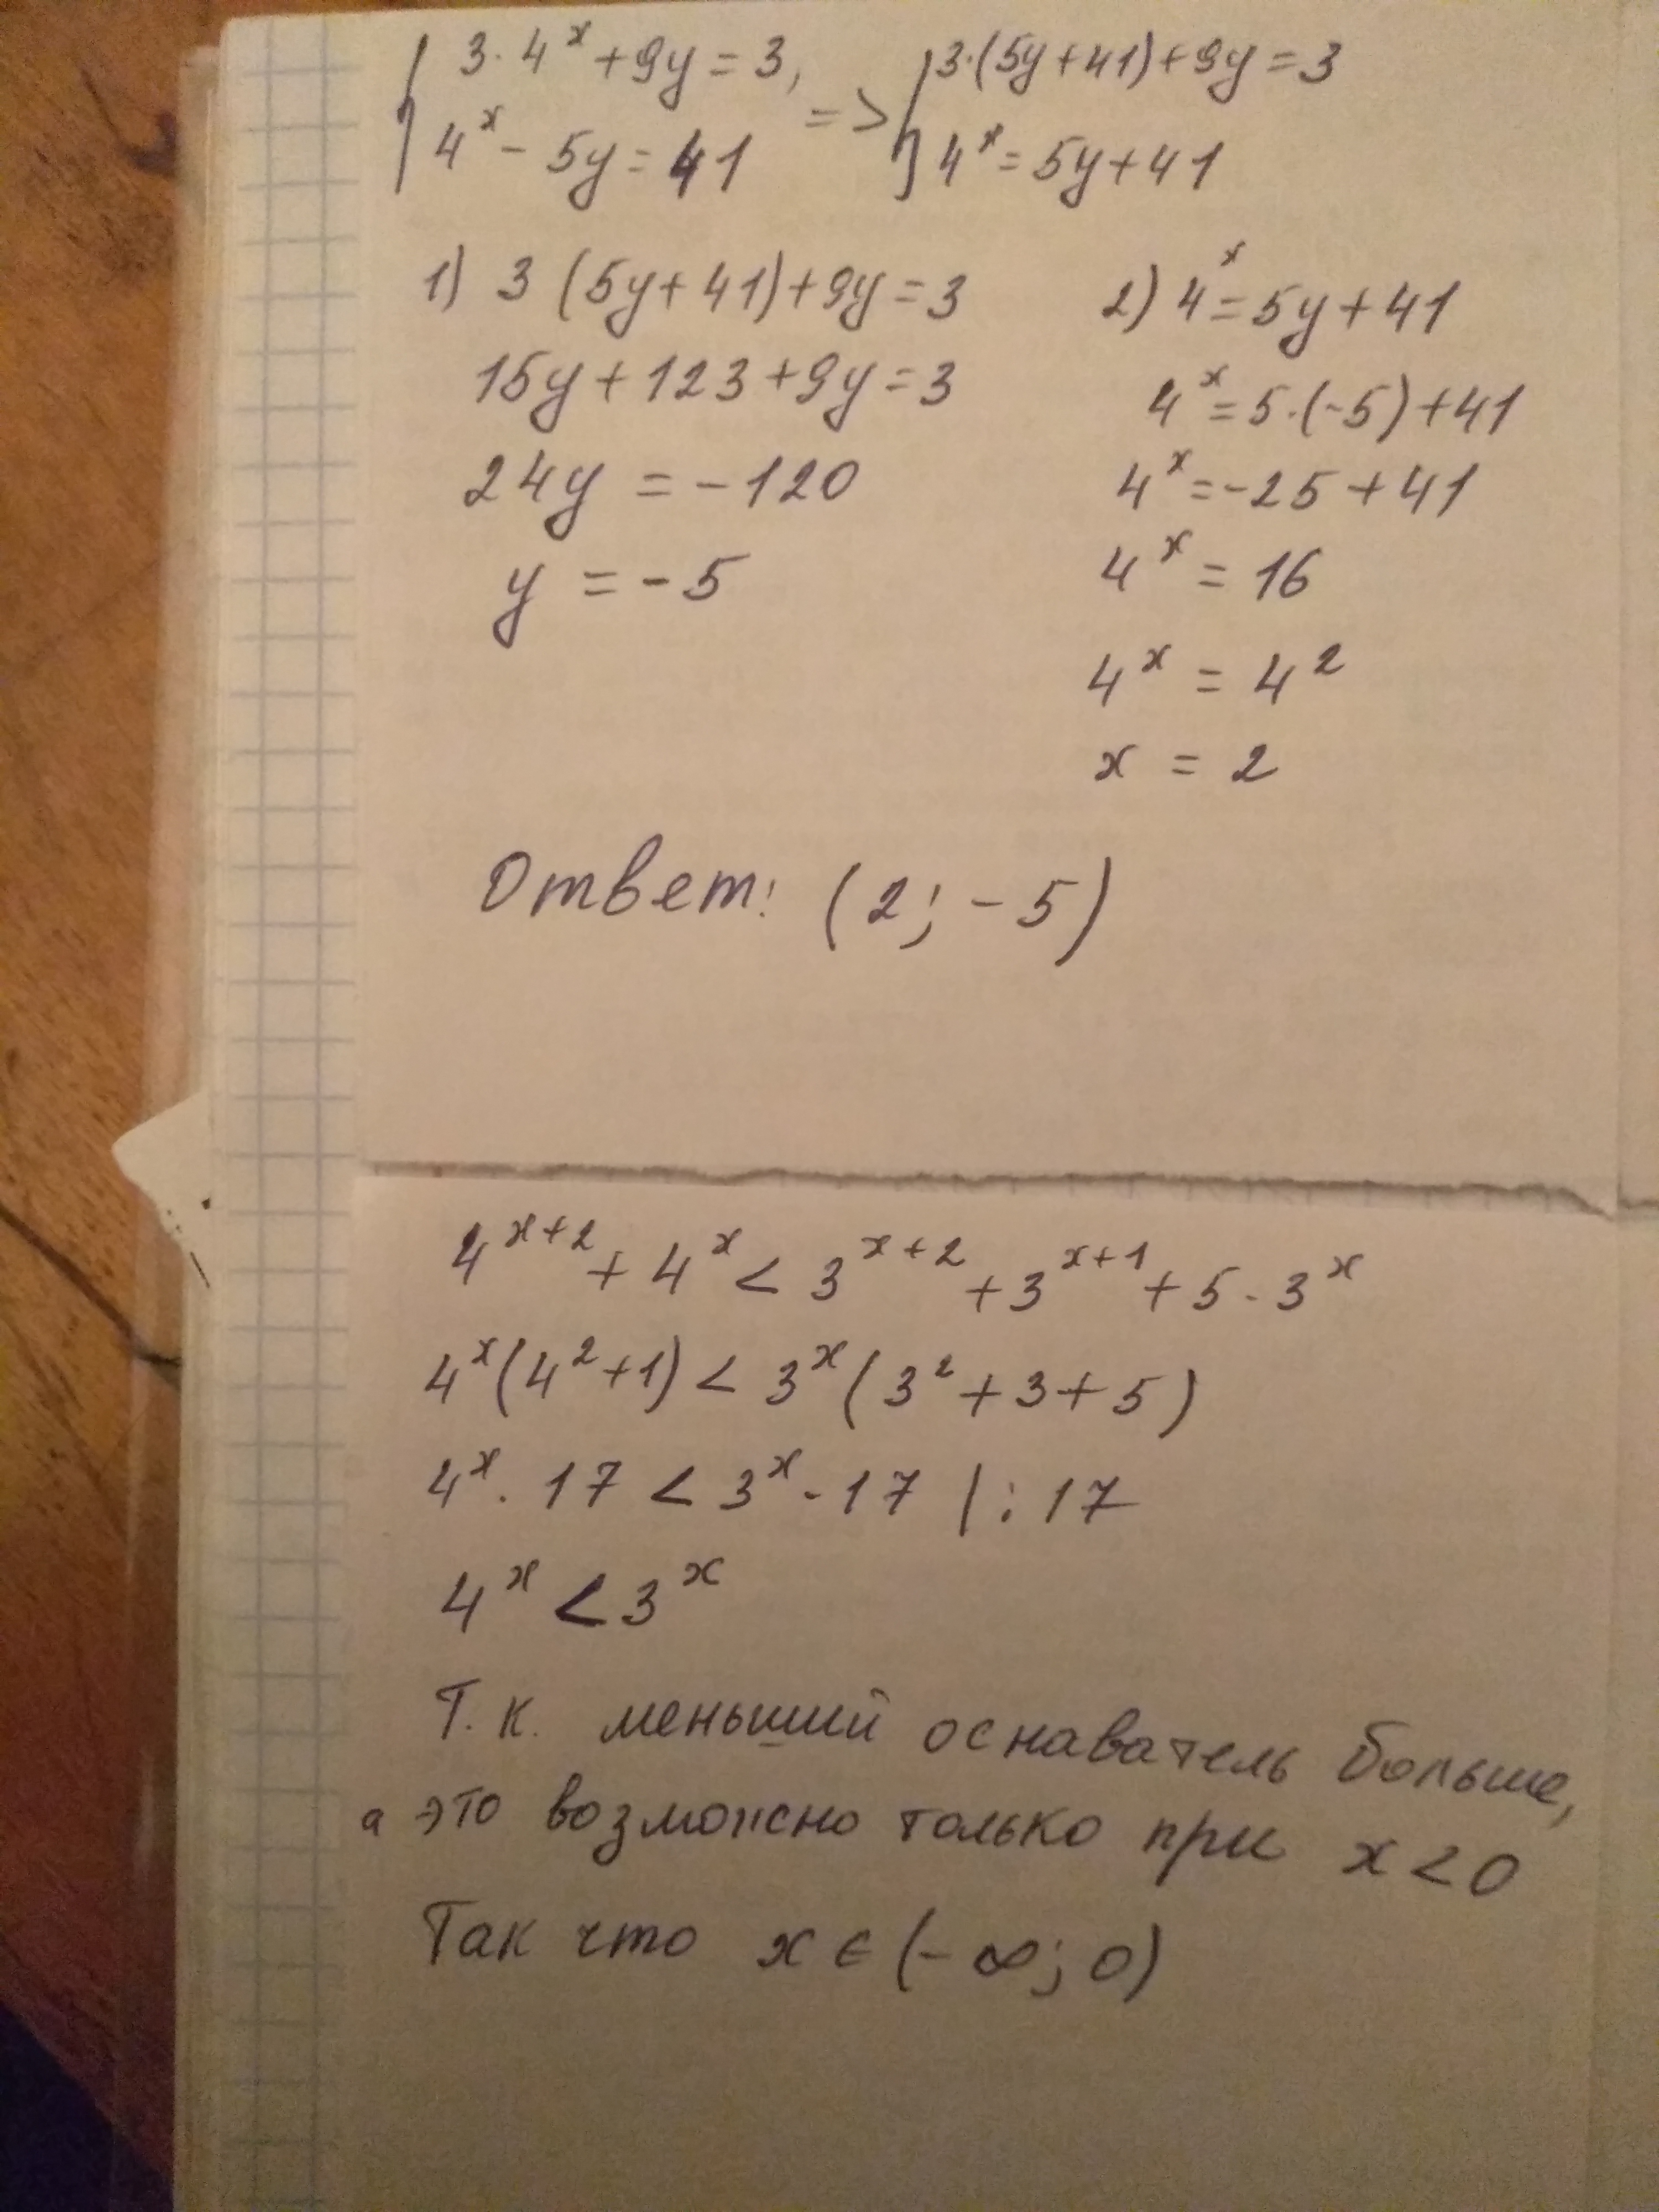 { 3·4^x + 9y = 3, => { 3·(5y+41)+9y=3
4^x - 5y = 41    4^x = 5y+41
1) 3 (5y+41)+9y=3
15y+123+9y=3
24y = -120
y = -5
2) 4^x = 5y+41
4^x = 5·(-5)+41
4^x = -25+41
4^x = 16
4^x = 4^2
x = 2
Ответ: (2; -5)
4^(x+2) + 4^x < 3^(x+2) + 3^(x+1) + 5·3^x
4^x (4^2+1) < 3^x (3^2+3+5)
4^x · 17 < 3^x · 17 | : 17
4^x < 3^x
Т.к. меньший оснаватель больше,
а это возможно только при x<0
Так что x ∈ (-∞; 0)